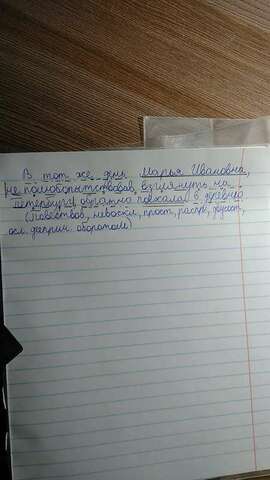 В тот же день Марья Ивановна,
не полюбопытствовав, взглянуть на
петербург, обратно поехала в деревню
(повествов, невоскл, прост, распр, двусост,
осл. дееприч. оборотом)